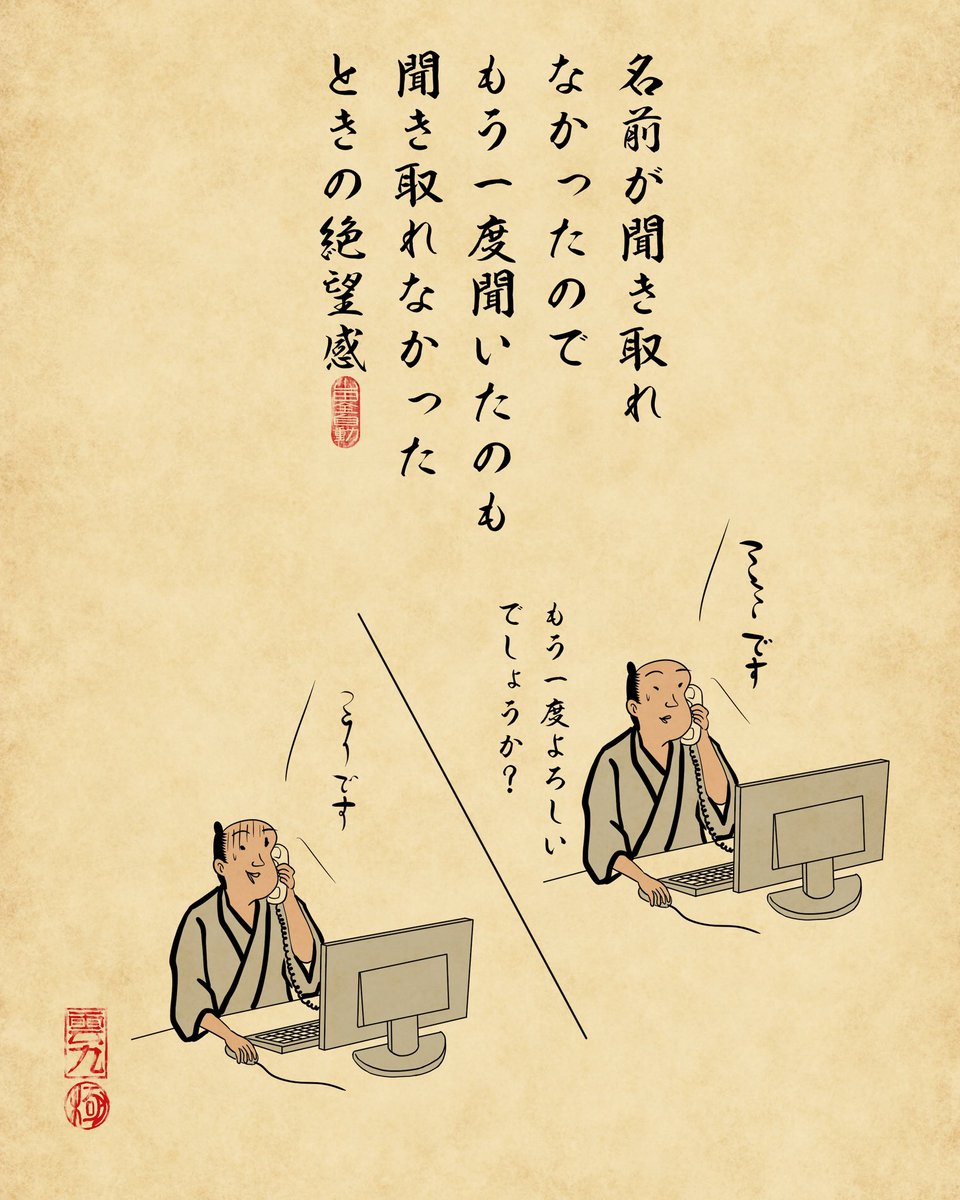 名前が聞き取れ
なかったので
もう一度聞いたのも
聞き取れなかった
ときの絶望感
です
もう一度よろしい
でしょうか?
です